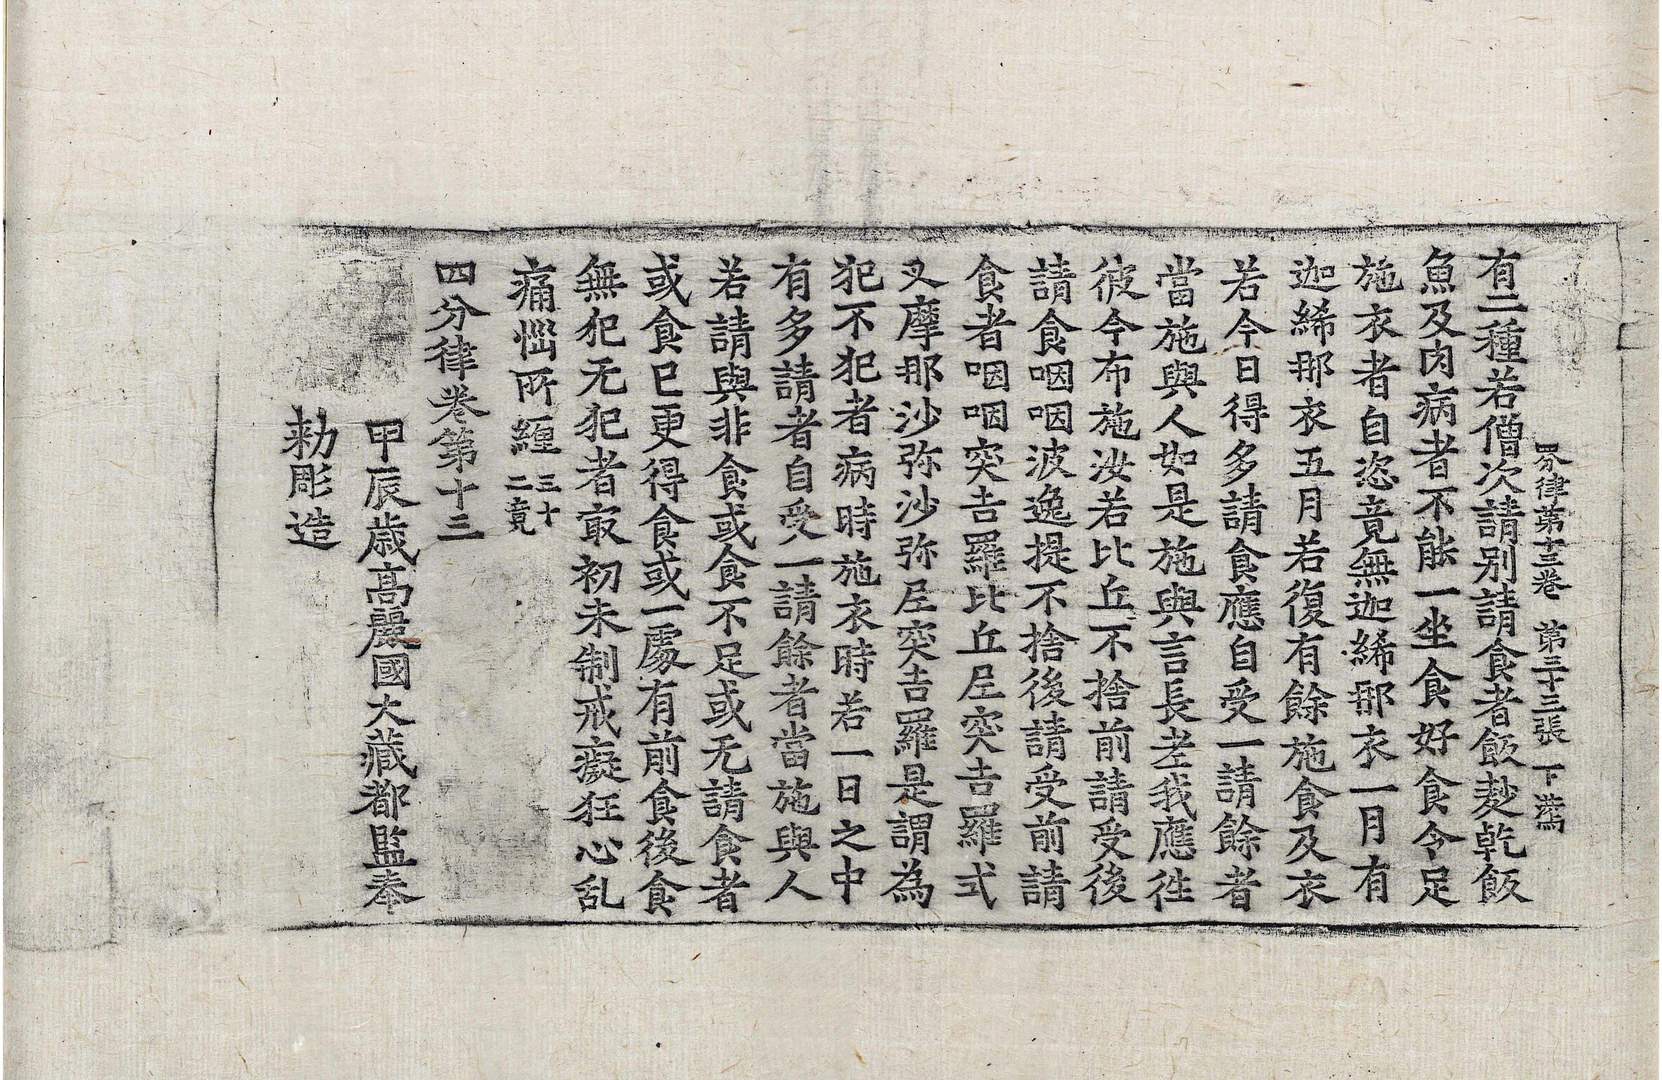 四分律第十三卷 第三十三張 下
有二種若僧次請別請食者飯麨乾飯
魚及肉病者不能一坐食好食令足
施衣者自恣竟無迦絺那衣一月有
迦絺那衣五月若復有餘施食及衣
若今日得多請食應自受一請餘者
當施與人如是施與言長老我應徃
彼今布施汝若比丘不捨前請受後
請食咽咽波逸提不捨後請受前請
食者咽咽突吉羅比丘尼突吉羅式
叉摩那沙弥沙弥尼突吉羅是謂為
犯不犯者病時施衣時若一日之中
有多請者自受一請餘者當施與人
若請與非食或食不足或无請食者
或食已更得食或一處有前食後食
無犯无犯者㝡初未制戒癡狂心乱
痛惱所纏三十二竟
四分律卷第十三
甲辰歳高麗國大藏都監奉
勑彫造